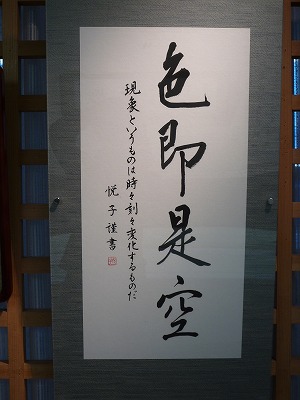 色即是空
現象というものは時々刻々変化するものだ
悦子謹書